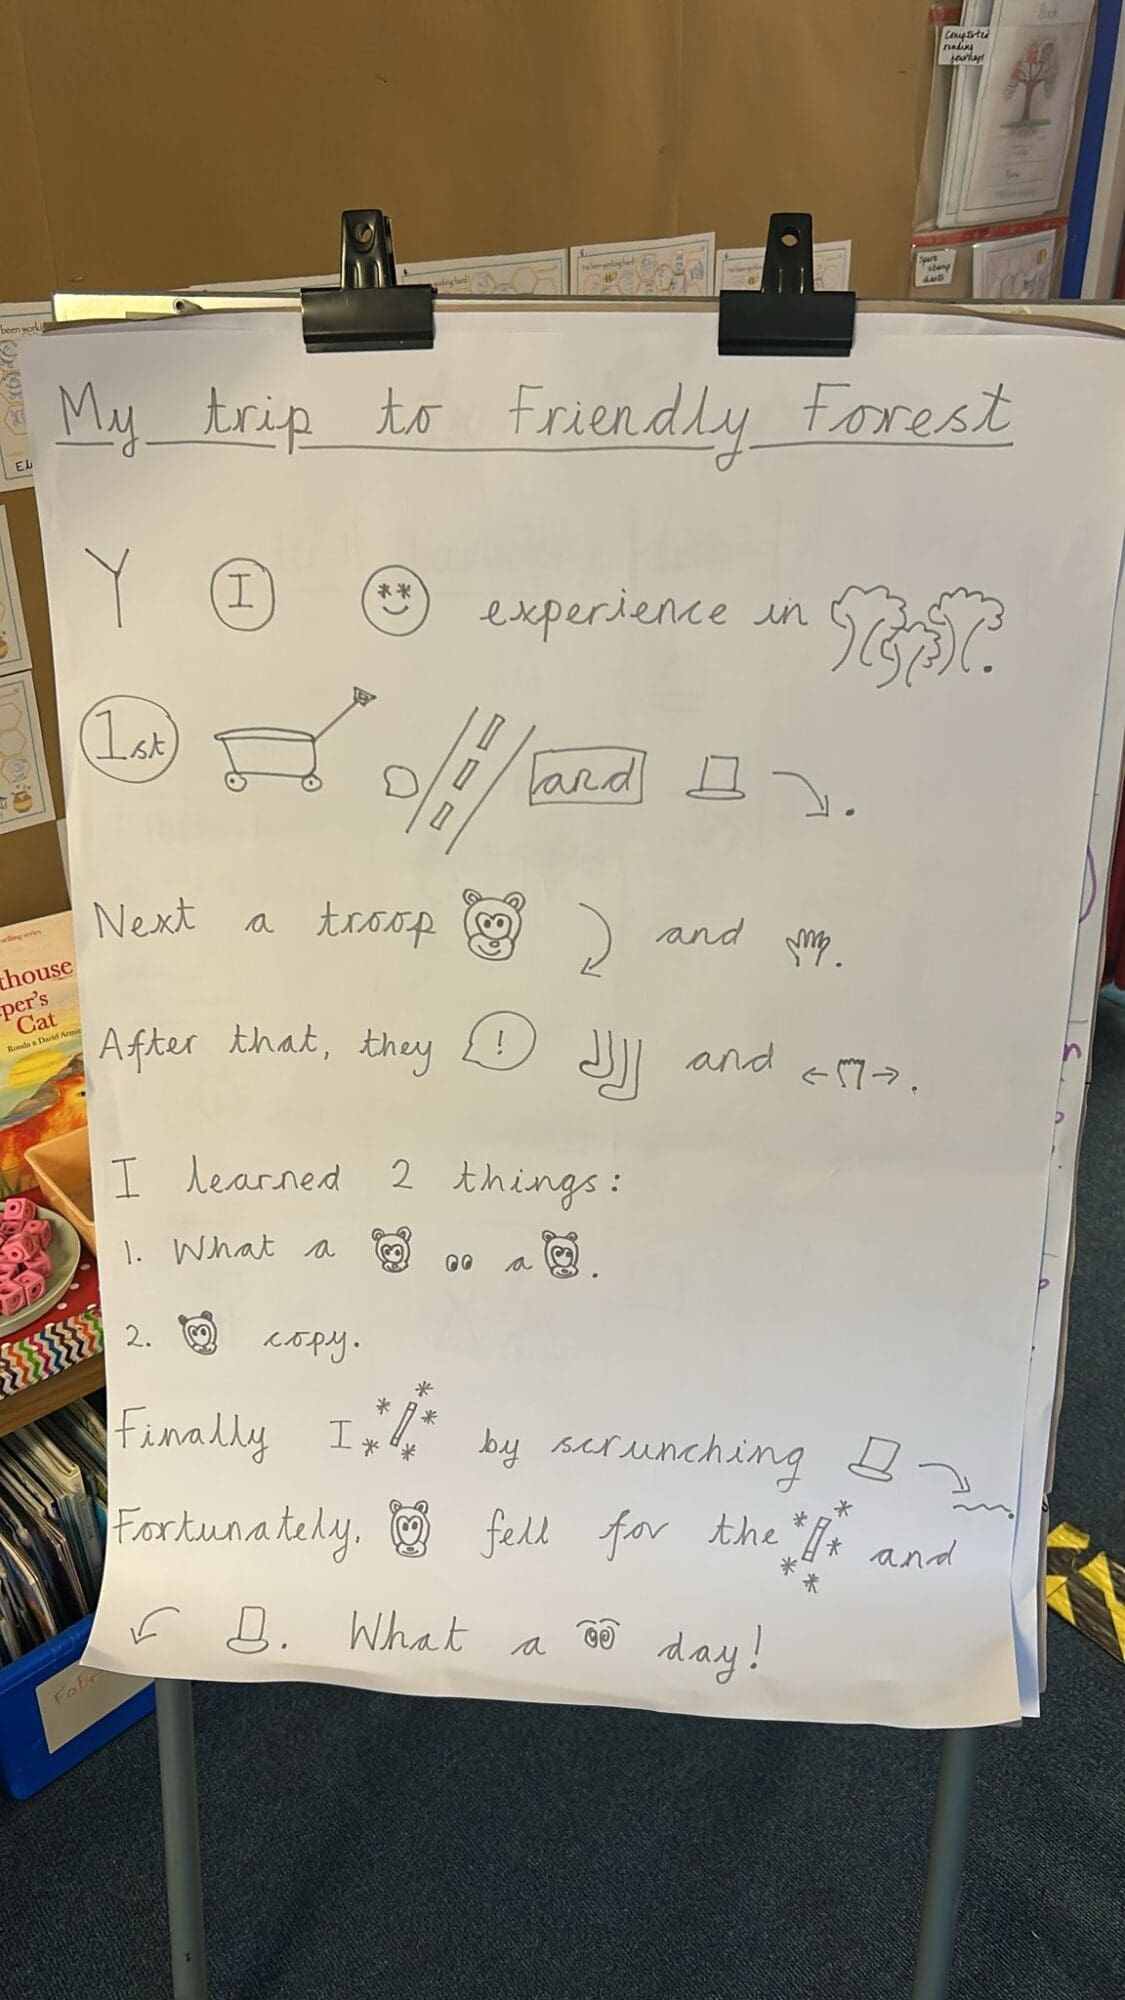 Completed
reading
journeys
Book
Spare
I've been working hard!
I've been working hard!
working hard!
been worki
My trip to Friendly Forest
Y I experience in .
1st and .
Next a troop and .
After that, they ! and .
I learned 2 things:
1. What a a .
2. copy.
Finally I by scrunching .
Fortunately, fell for the and
. What a day!
selling series
thouse
per's
Cat
Ronda & David Armit
Fabr